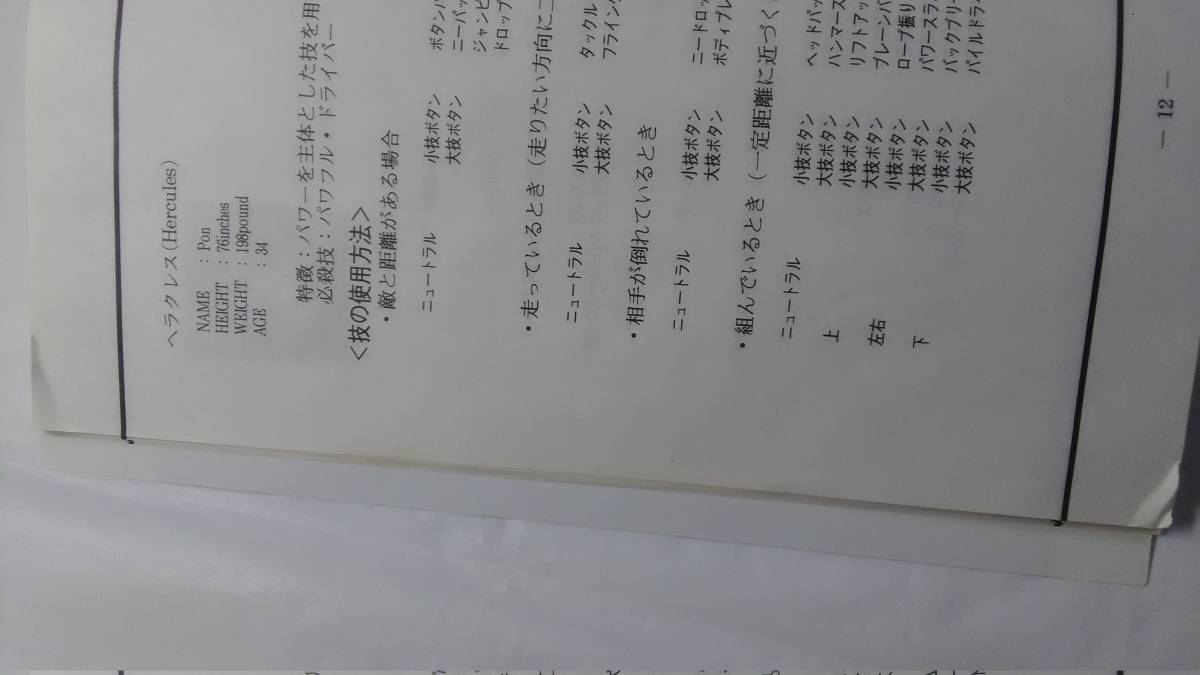 ヘラクレス(Hercules)
NAME : Pon
HEIGHT : 76inches
WEIGHT : 198pound
AGE : 34
特徴：パワーを主体とした技を用
必殺技：パワフル・ドライバー
<技の使用方法>
・敵と距離がある場合
ニュートラル 小技ボタン ボタン
大技ボタン ニーパッ
ジャンピ
ドロップ
・走っているとき（走りたい方向に二
ニュートラル 小技ボタン タックル
大技ボタン フライング
・相手が倒れているとき
ニュートラル 小技ボタン ニードロッ
大技ボタン ボディプレ
・組んでいるとき（一定距離に近づく
ニュートラル 小技ボタン ヘッドバッ
大技ボタン ハンマース
上 小技ボタン リフトアッ
大技ボタン ブレーンバ
左右 小技ボタン ロープ振り
大技ボタン パワースラ
下 小技ボタン バックブリー
大技ボタン パイルドラ
― 12 ―